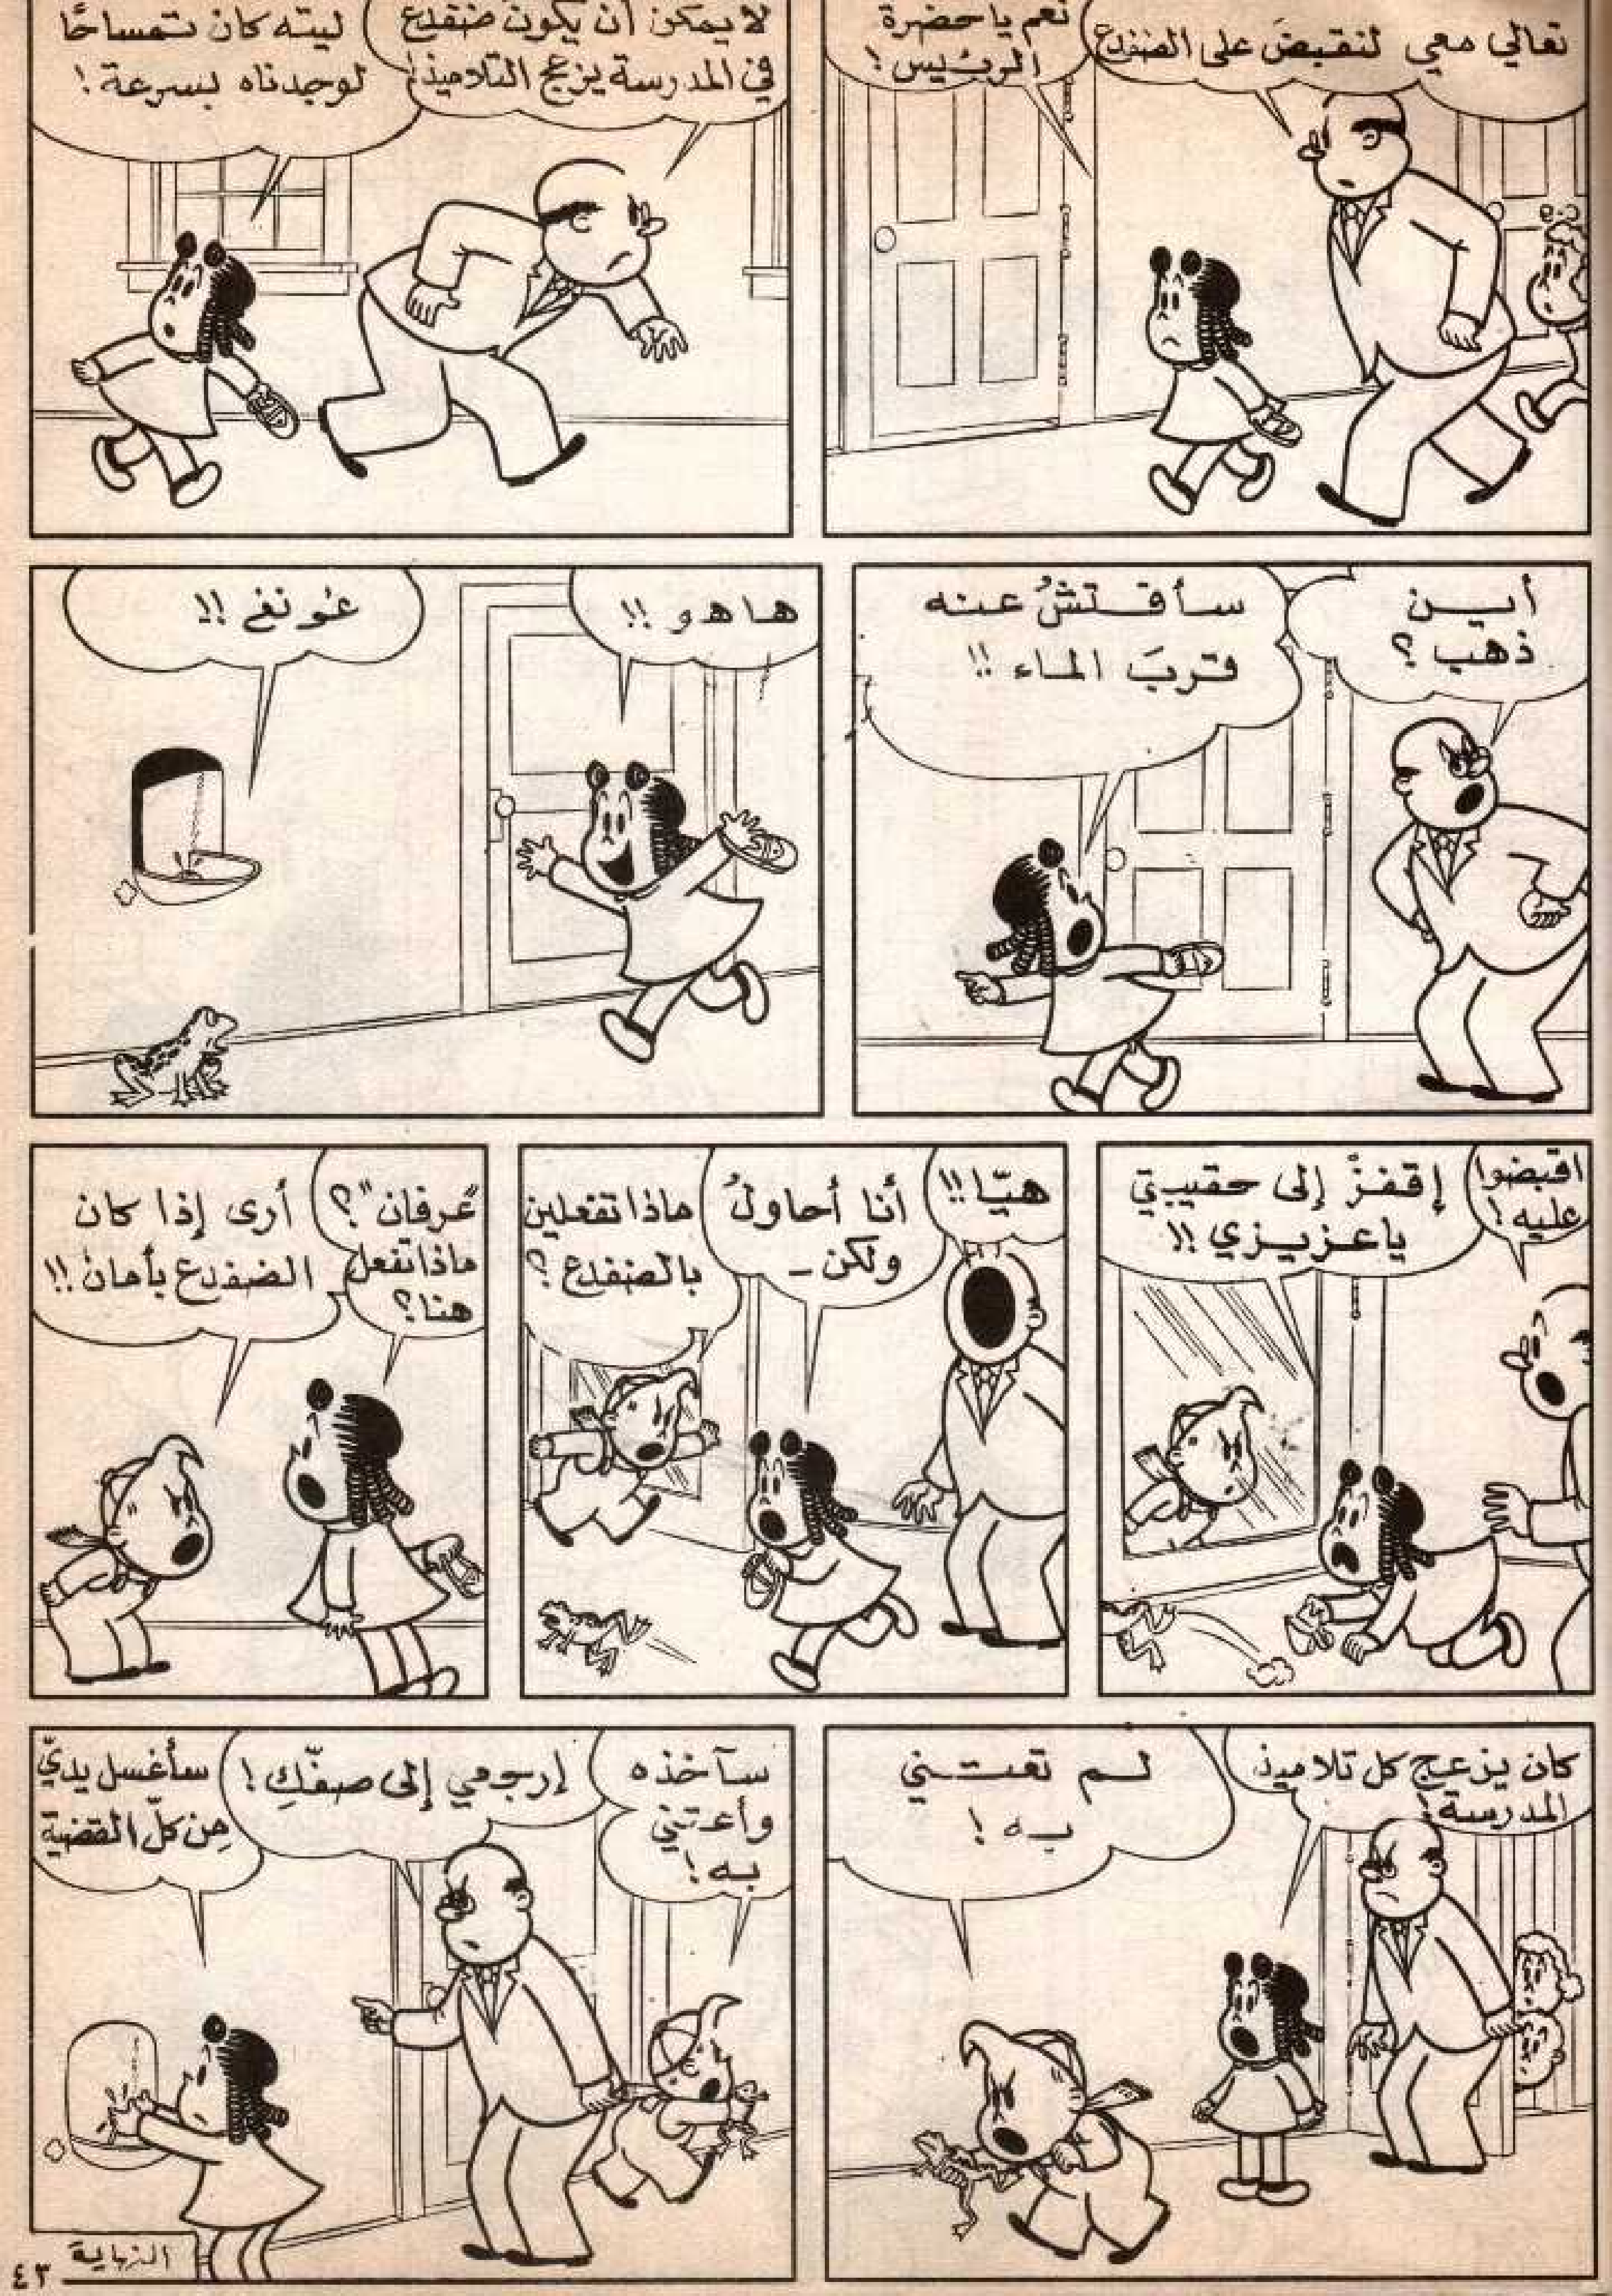 تعالي معي لنقبضَ على الضفدع
نعم يا حضرة
الرئيس!
لا يمكن أن يكون ضفدع
في المدرسة يزعج التلاميذ!
ليته كان تمساحًا
لوجدناه بسرعة!
أين
ذهب؟
سأفتشُ عنه
قربَ الماء!!
ها هو!!
غونغ!!
اقبضوا
عليه!
إقفزْ إلى حقيبتي
يا عزيزي!!
هيّا!!
أنا أحاولُ
ولكن ـ
ماذا تفعلين
بالضفدع؟
"عرفان"؟
ماذا تفعل
هنا؟
أرى إذا كان
الضفدع بأمان!!
كان يزعج كل تلاميذ
المدرسة!
لم تعتني
به!
سآخذه
وأعتني
به!
إرجعي إلى صفّكِ!
سأغسل يديّ
من كلّ القضية
النهاية
٤٣